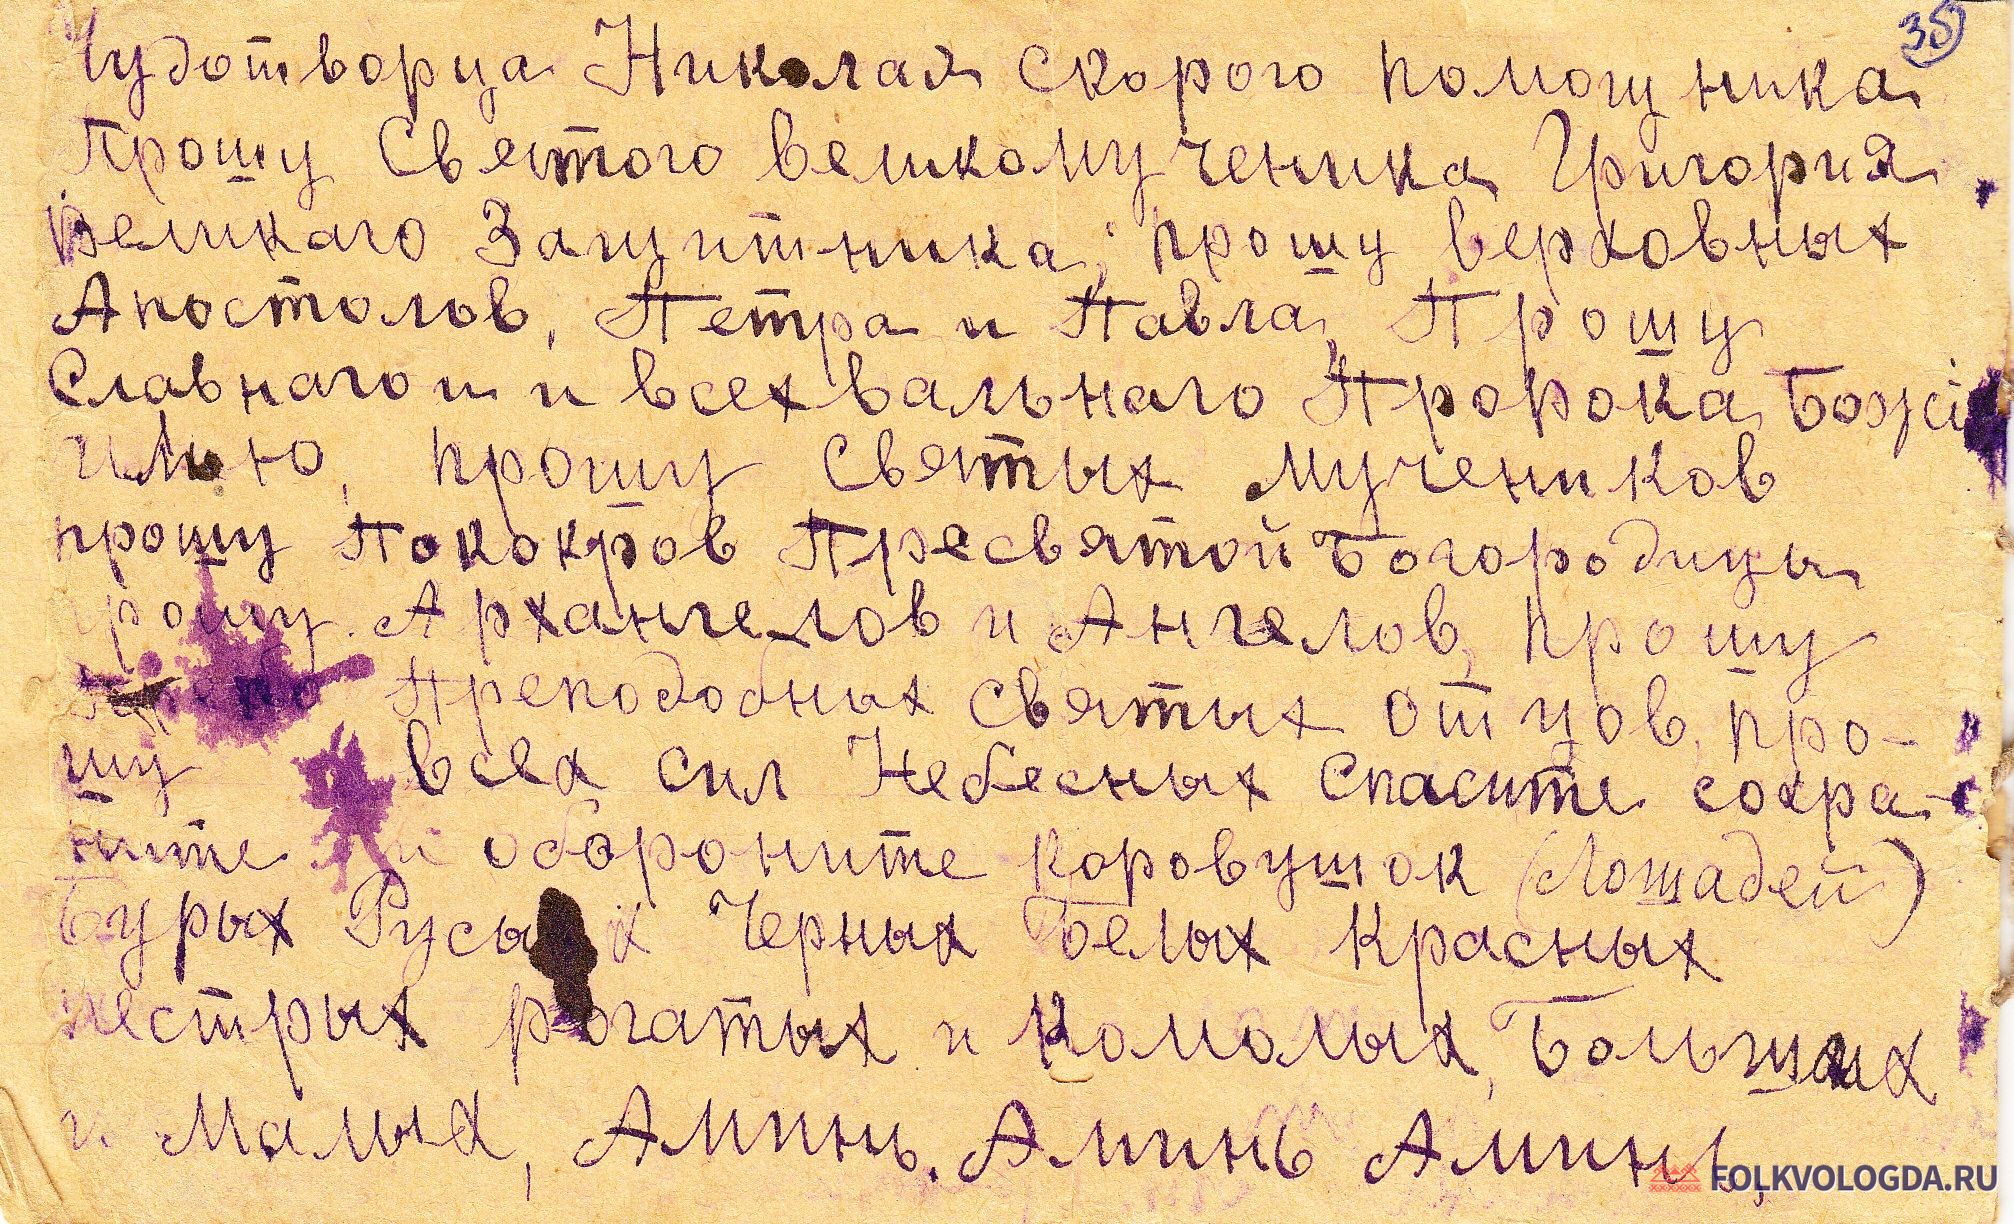 35
Чудотворца Николая скорого помощника
Прошу Святого великомученика Григория
Великаго Защитника, прошу верховных
Апостолов, Петра и Павла, Прошу
Славнаго и и всехвальнаго Пророка Божі
илью, прошу Святых мучеников
прошу Пококров Пресвятой Богородицы
прошу Архангелов и Ангелов, прошу
Преподобных святых отцов, про-
шу всех сил Небесных Спасите сохра-
ните и обороните коровушок (Лошадей)
Бурых Русых Черных Белых Красных
пестрых рогатых и Комолых, Больших
и Малых, Аминь. Аминь Аминь.
FOLKVOLOGDA.RU